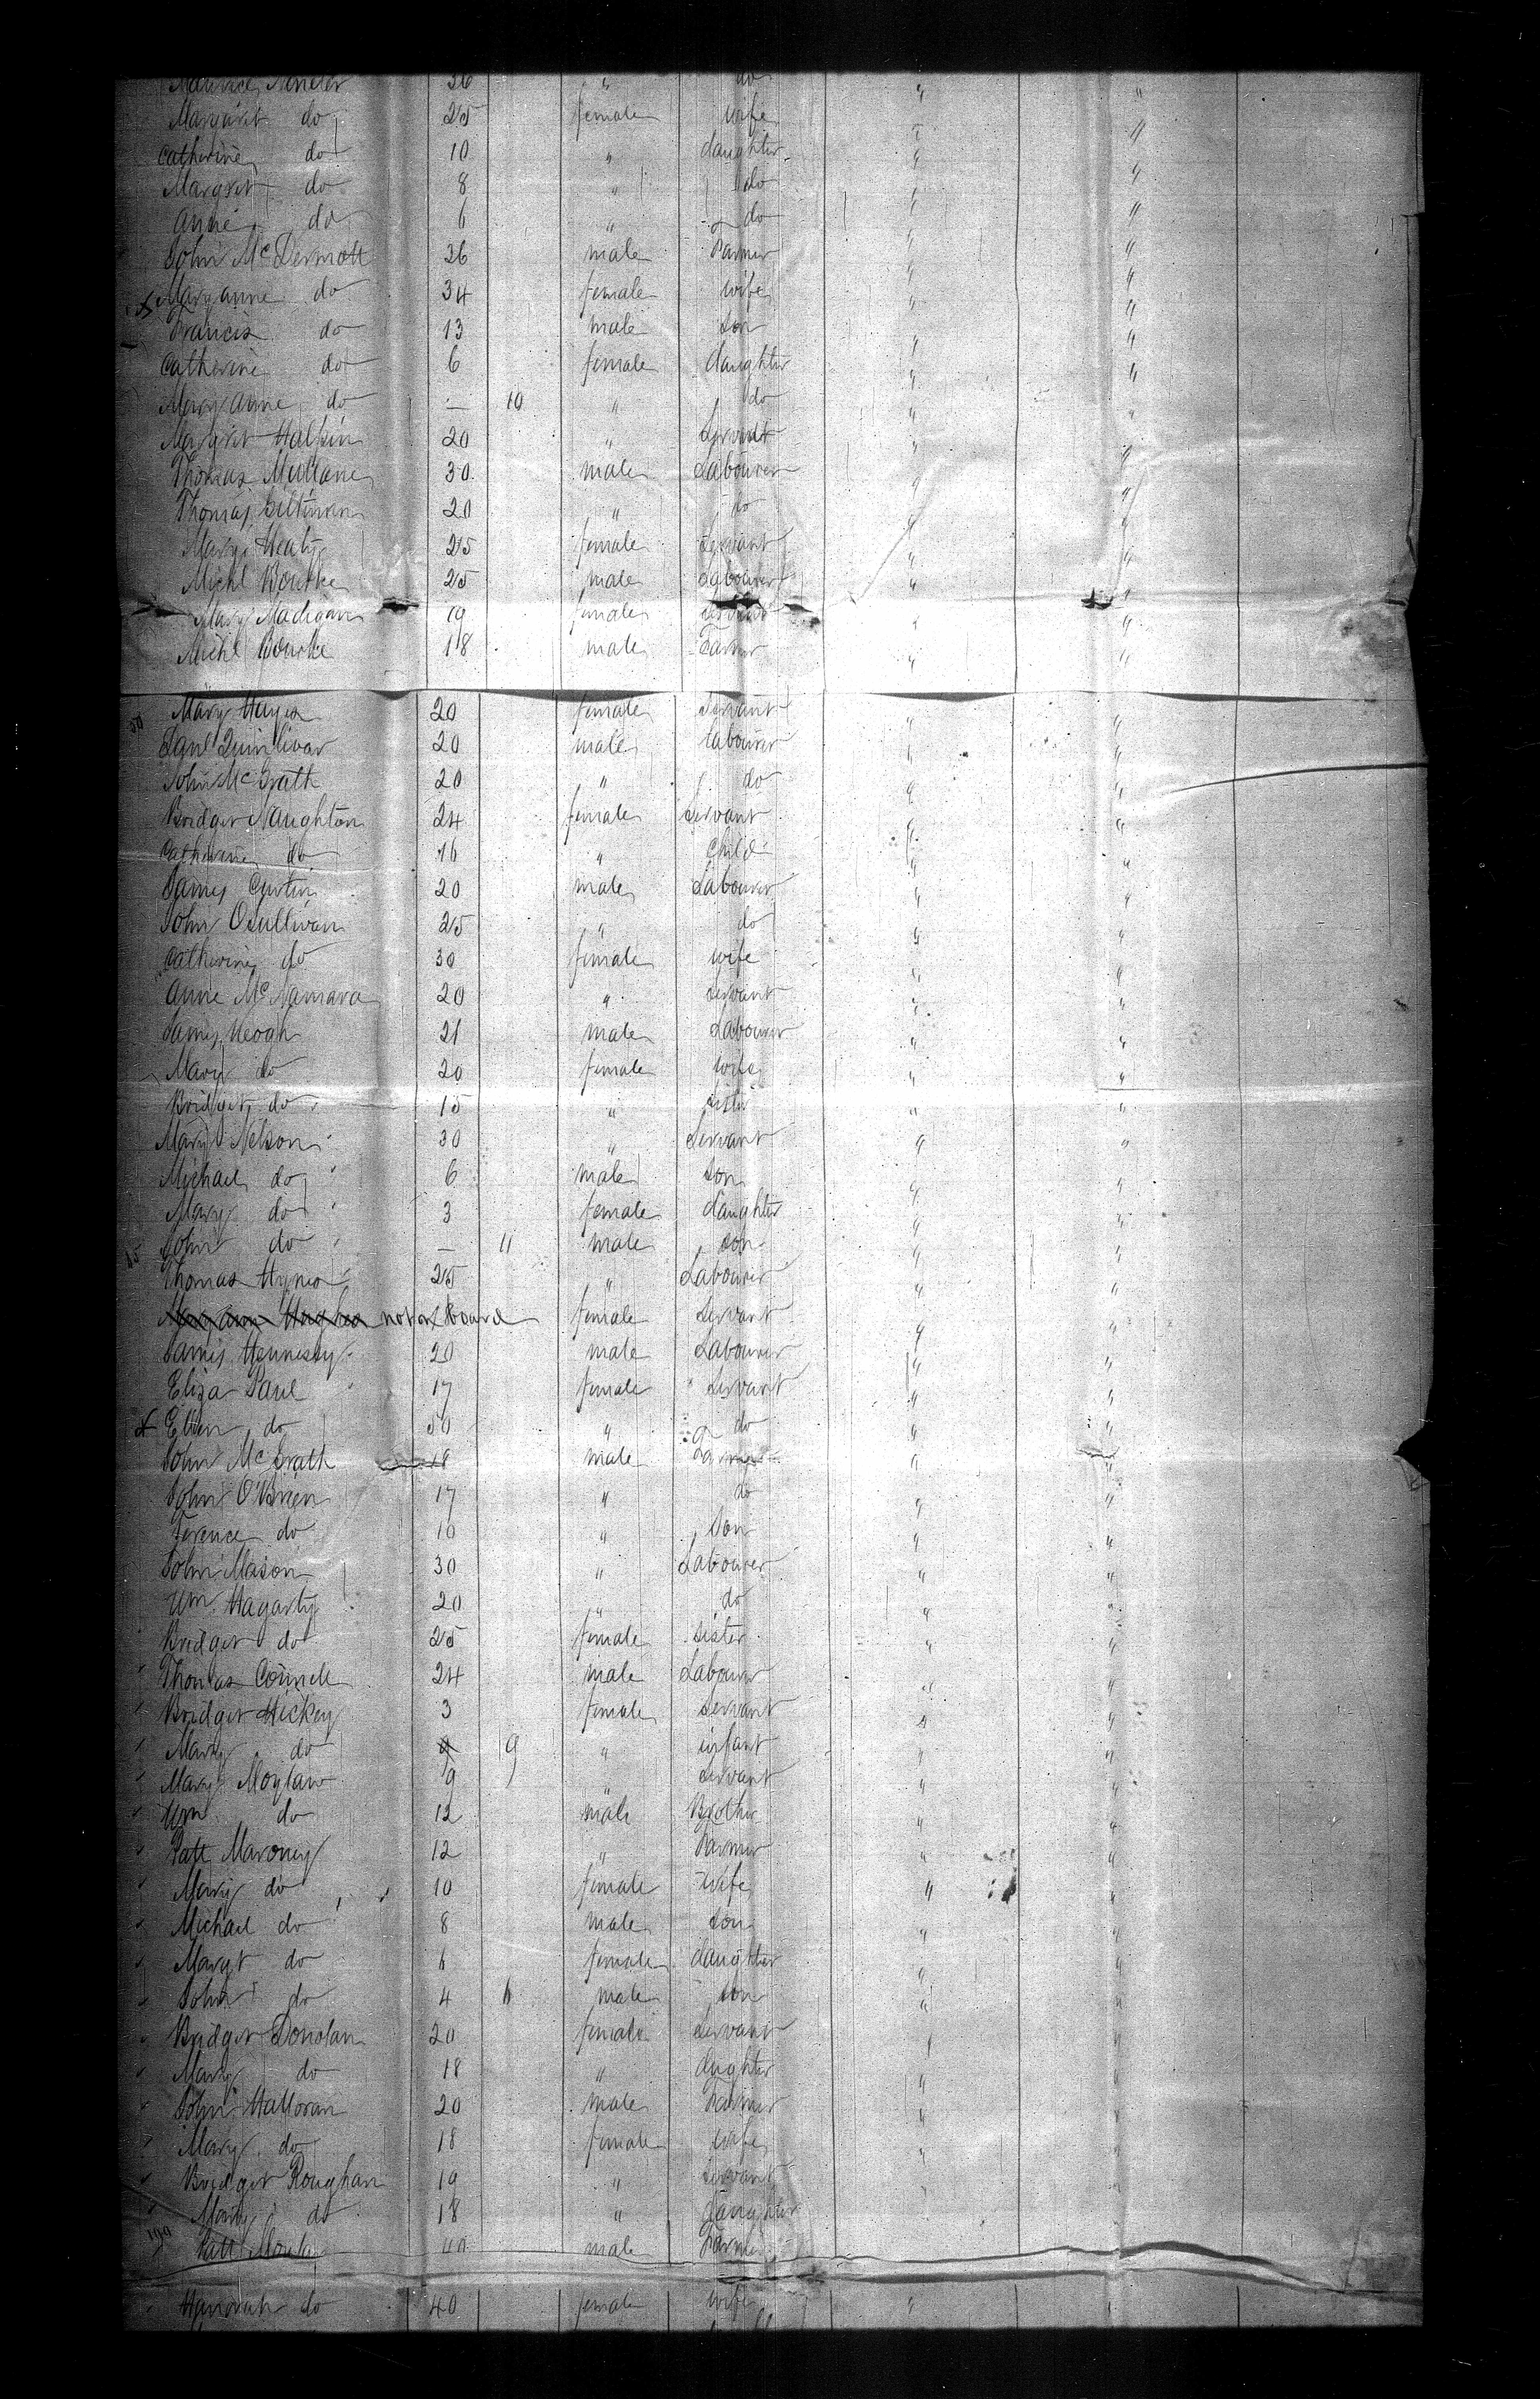 Maurice 26 " do " "
Margaret do 25 female wife " "
Catherine do 10 " daughter " "
Margret do 8 " do " "
Anne do 6 " do " "
John McDermott 36 male Farmer " "
Maryanne do 34 female wife " "
Francis do 13 male son " "
Catherine do 6 female daughter " "
Mary Anne do — 10 " do " "
Margret Halpin 20 " Servant " "
Thomas Mullane 30 male Labourer " "
Thomas 20 " do " "
Mary Healy 25 female Servant " "
Michl Bourke 25 male Labourer " "
Mary Madigan 19 female servant " "
Michl Bourke 18 male Farmer " "
Mary Hayes 20 female Servant " "
Quinlivan 20 male labourer " "
John McGrath 20 " do " "
Bridget Naughton 24 female Servant " "
Catherine do 16 " Child " "
James Curtin 20 male Labourer " "
John OSullivan 25 " do " "
Catherine do 30 female wife " "
Anne McNamara 20 " Servant " "
James Keogh 21 male Labourer " "
Mary do 20 female wife " "
Bridget do 15 " sister " "
Mary Nelson 30 " Servant " "
Michael do 6 male Son " "
Mary do 3 female daughter " "
John do — 11 male son " "
Thomas Hynes 25 " Labourer " "
Mary Ann Hughes not on board female Servant " "
James Hennessy 20 male Labourer " "
Eliza Paul 17 female Servant " "
Ellen do 50 " do " "
John McGrath 18 male Farmer " "
John O'Brien 17 " do " "
Terence do 10 " Son " "
John Mason 30 " Labourer " "
Wm. Hagarty 20 " do " "
Bridget do 25 female sister " "
Thomas Connell 24 male Labourer " "
Bridget Hickey 3 female Servant " "
Mary do 9 " infant " "
Mary Moylan 19 " Servant " "
Wm do 12 male Brother " "
Patt Maroney 12 " Farmer " "
Mary do 10 female wife " "
Michael do 8 male son " "
Margt do 6 female daughter " "
John do 4 male son " "
Bridget Donolan 20 female Servant " "
Mary do 18 " dughter " "
John Halloran 20 male Farmer " "
Mary do 18 female wife " "
Bridget Roughan 19 " servant " "
Mary do 18 " daughter " "
Patt 40 male Farmer
Hanorah do 40 female wife "